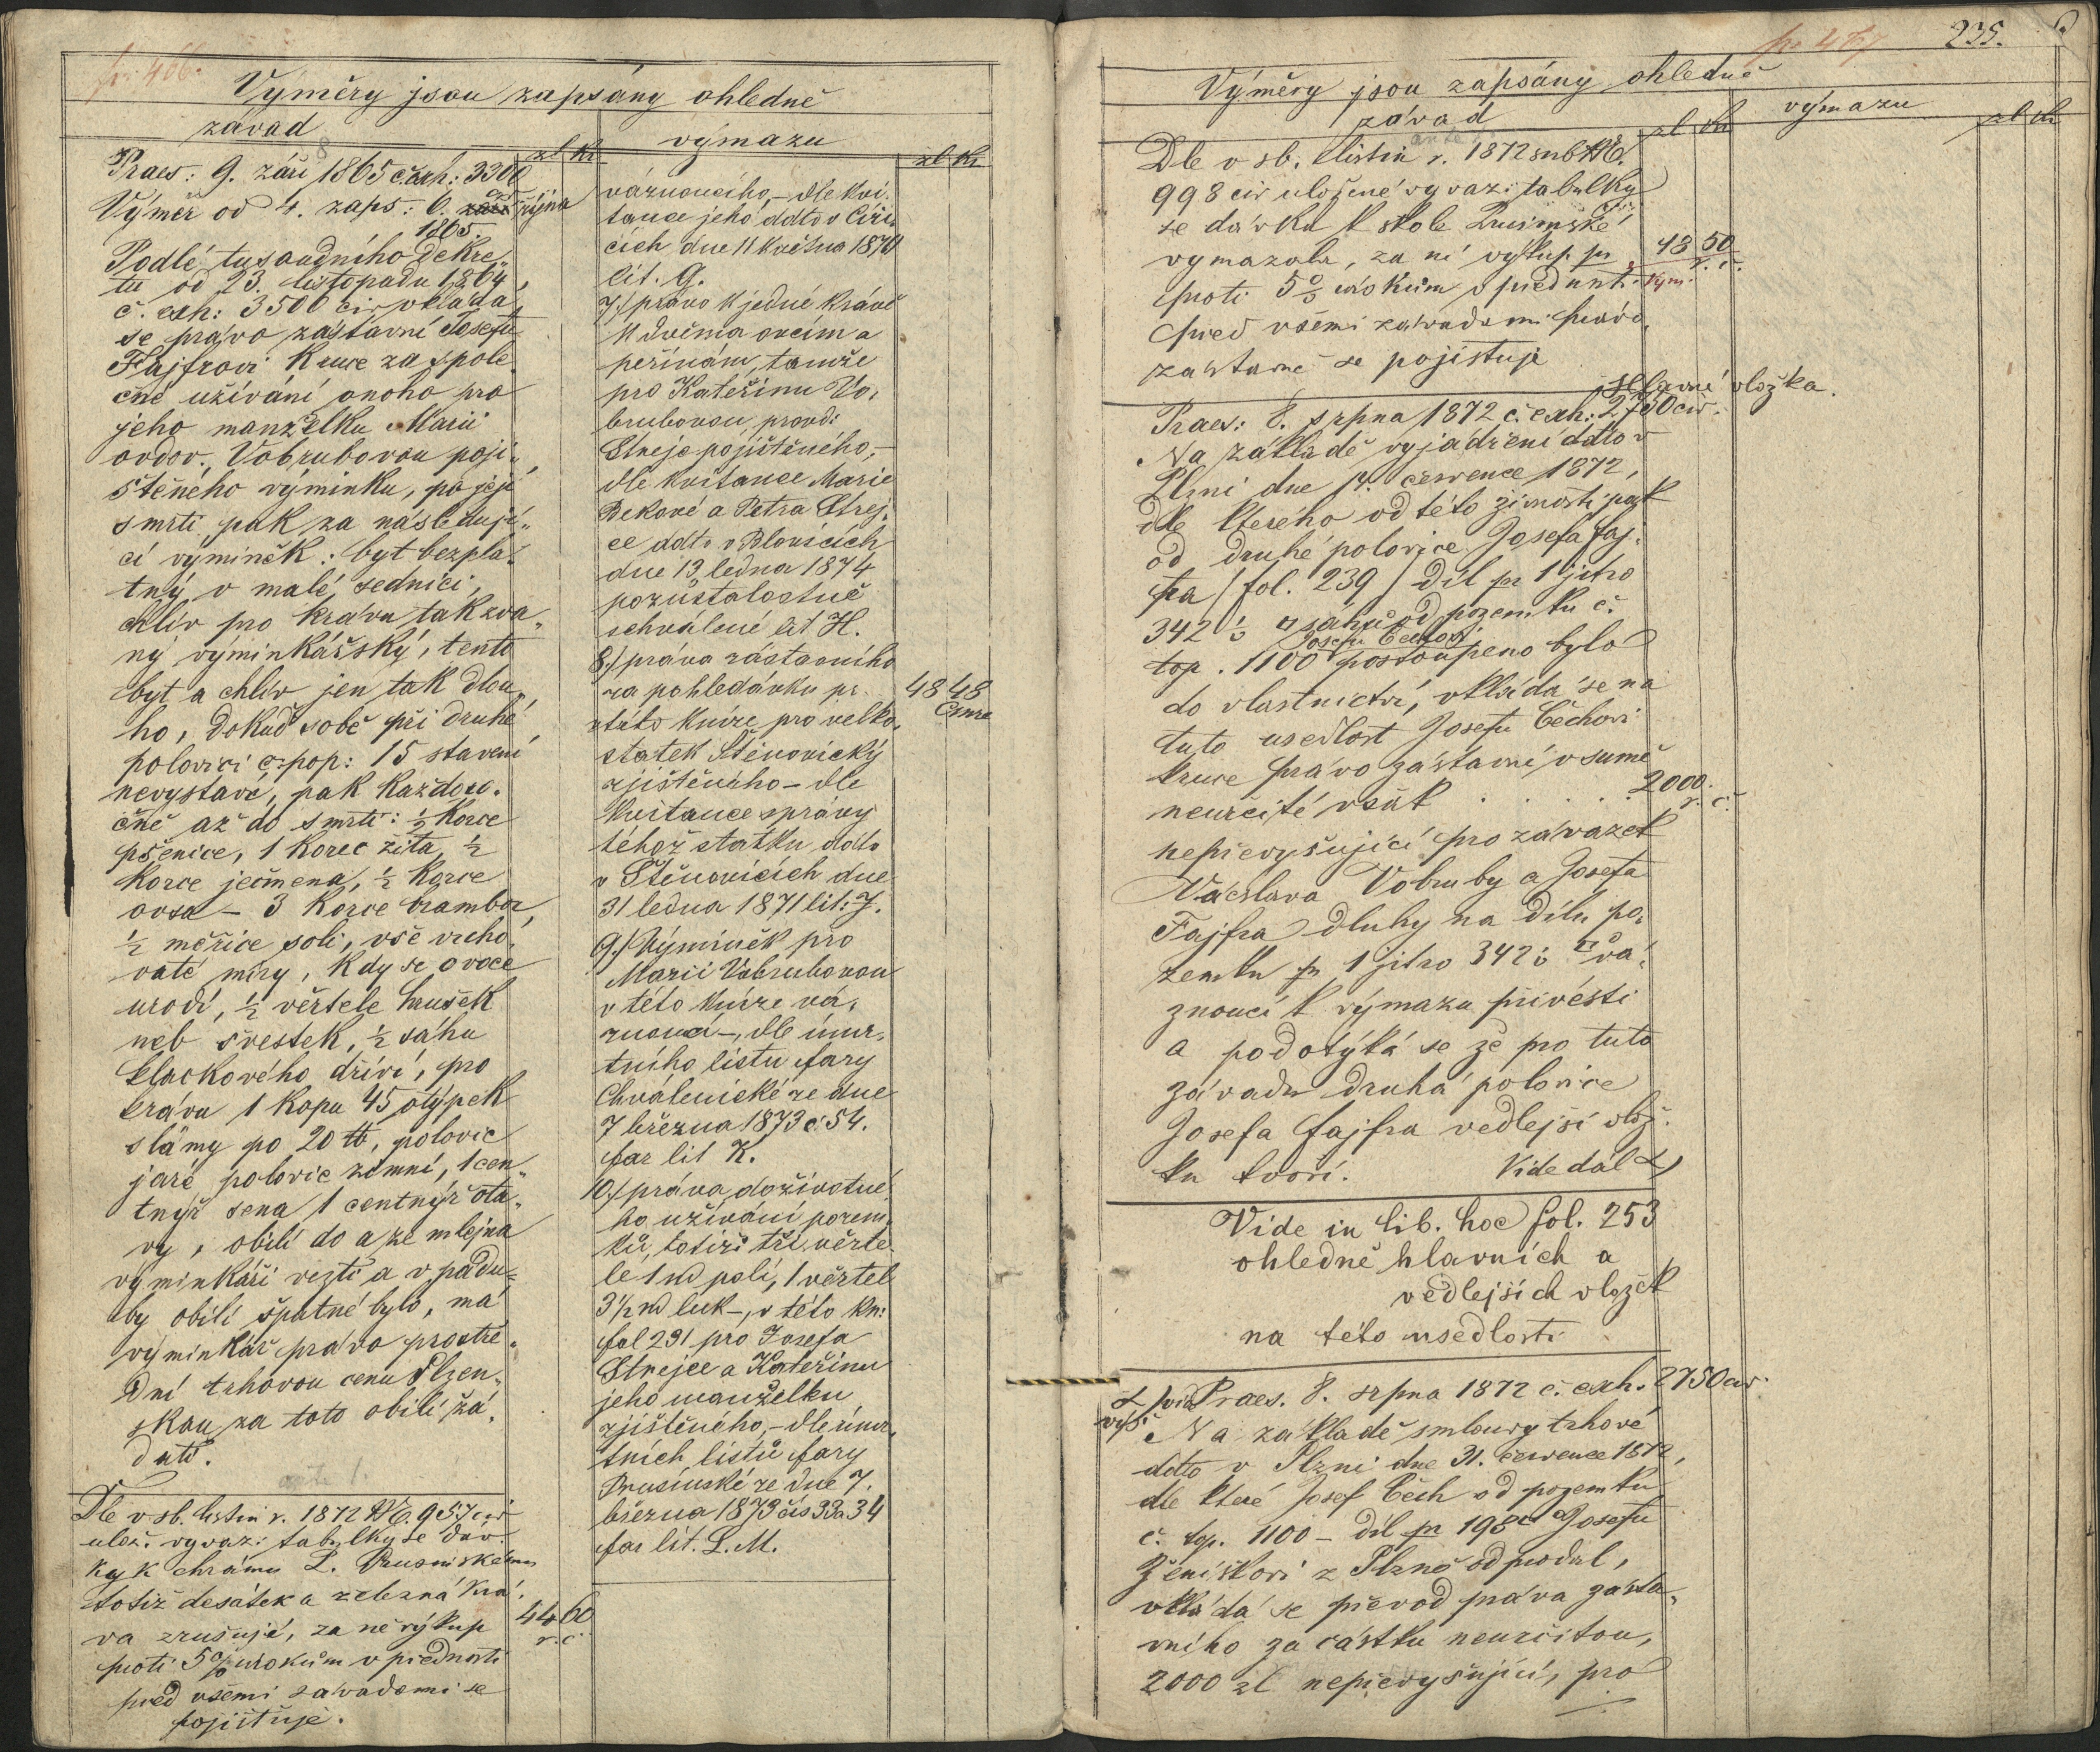 pr. 466.
Výměry jsou zapsány ohledně
závad
zl kr
Praes: 9. září 1865 č. exh: 3300
Výměr od 4. zaps: 6. října
1865.
Podlé tusoudního dekre„
tu od 23. listopadu 1864,
č. exh: 3500 civ vkládá
se právo zástavní Josefu
Fajfrovi Kruce za spole„
čné užívání onoho pro
jeho manželku Marii
ovdov. Vobrubovou poji„
štěného výminku, po její
smrti pak za následují„
cí výminěk: byt bezpla„
tný v malé sednici,
chlív pro krávu tak zva„
ný výminkářský, tento
byt a chlív jen tak dlou„
ho, dokud sobě při druhé
polovici čpop: 15 stavení
nevystaví, pak každoro„
čně až do smrti: ½ korce
pšenice, 1 korec žita, ½
korce ječmena, ½ korce
ovsa – 3 korce brambor,
½ měřice soli, vše vrcho„
vaté míry, kdy se ovoce
urodí, ½ věrtele hrušek
neb švestek, ½ sáhu
klackového dříví, pro
krávu 1 kopu 45 otýpek
slámy po 20 ℔, polovic
jaré polovic zimní, 1 cen„
tnýř sena 1 centnýř ota„
vy, obilí do a ze mlejna
výminkáři vezti a v pádu„
by obilí špatné bylo, má
výminkář právo prostře„
dní trhovou cenu Plzen„
skou za toto obilí žá„
dati.
Dle v sb. listin r. 1872 957 civ
ulož. vyvaz: tabulky se dáv„
ky k chrámu P.
totiž desátek a železná krá„
va zrušují, za ně výkup 44 60
r. č.
proti 5% úrokům v přednosti
před všemi závadami se
pojišťuje.
výmazu
zl kr
váznoucího, – dle kvi„
tance jeho ddto v
cích dne 11 května 1870
lit. G.
7./ právo k jedné krávě
k dvěma ovcím a
peřinám, tamže
pro Kateřinu Vo„
brubovou, provd:
Strejc pojištěného, –
dle kvitance Marie
Bekové a Petra Strej„
ce ddto v Blovicích
dne 13 ledna 1874
pozůstalostně
schválené lit H.
8./ práva zástavního
za pohledávku pr. 48 48
v této knize pro velko„
statek Štěnovický
zjištěného – dle
kvitance správy
téhož statku ddto
v Štěnovicích dne
31 ledna 1871 lit: J.
9./ Výminěk pro
Marii Vobrubovou
v této knize vá„
znoucí –, dle úmr„
tního listu fary
Chválenické ze dne
7 března 1873 č: 54.
far lit K.
10./ práva doživotné„
ho užívání pozem„
ků, totiži tři věrte„
le 1 md polí, 1 věrtel
3½ md luk –, v této kn:
fol 231 pro Josefa
Strejce a Kateřinu
jeho manželku
zjištěného, – dle úmr„
tních listů fary
Prusinské ze dne 7.
března 1873 čís 33 a 34
far lit. L. M.
pr. 467 235.
Výměry jsou zapsány ohledně
závad
zl kr
výmazu
zl kr
Dle v sb. listin r. 1872 sub
998 civ uložené vyvaz: tabulky
se dávka k škole Prusinské
vymazala, za ní výkup pr 48 50
r. č.
proti 5% úrokům v přednosti
před všemi závadami právo
zástavně se pojistuje
hlavní vložka.
Praes: 8. srpna 1872 č. exh: 2750 civ.
Na základě vyjádření ddto v
Plzni dne července 1872,
dle kterého od této živnosti pak
od druhé polovice Josefa Faj„
fra / fol. 239 / díl pr 1 jitro
342 sáhů od pozemku č.
top. 1100 Josefu Čechovi postoupeno bylo
do vlastnictví, vkládá se na
tuto usedlost Josefu Čechovi
kruce právo zástavní v sumě
neurčité však . . . . . 2000.
r. č.
nepřevyšující pro závazek
Václava Vobruby a Josefa
Fajfra dluhy na dílu po„
zemku pr 1 jitro 342 vá„
znoucí k výmazu přivésti
a podotýká se že pro tuto
závadu druhá polovice
Josefa Fajfra vedlejší vlož„
ku tvoří. Vide dál
Vide in lib. hoc fol. 253
ohledně hlavních a
vedlejších vložek
na této usedlosti
vid. výš.
Praes. 8. srpna 1872 č. exh. 2750 civ.
Na základě smlouvy trhové
ddto v Plzni dne 31. července 1872,
dle které Josef Čech od pozemku
č. top. 1100 – díl pr 198 Josefu
Ženíškovi z Plzně odprodal,
vkládá se převod práva zásta„
vního za částku neurčitou,
2000 zl nepřevyšující, pro